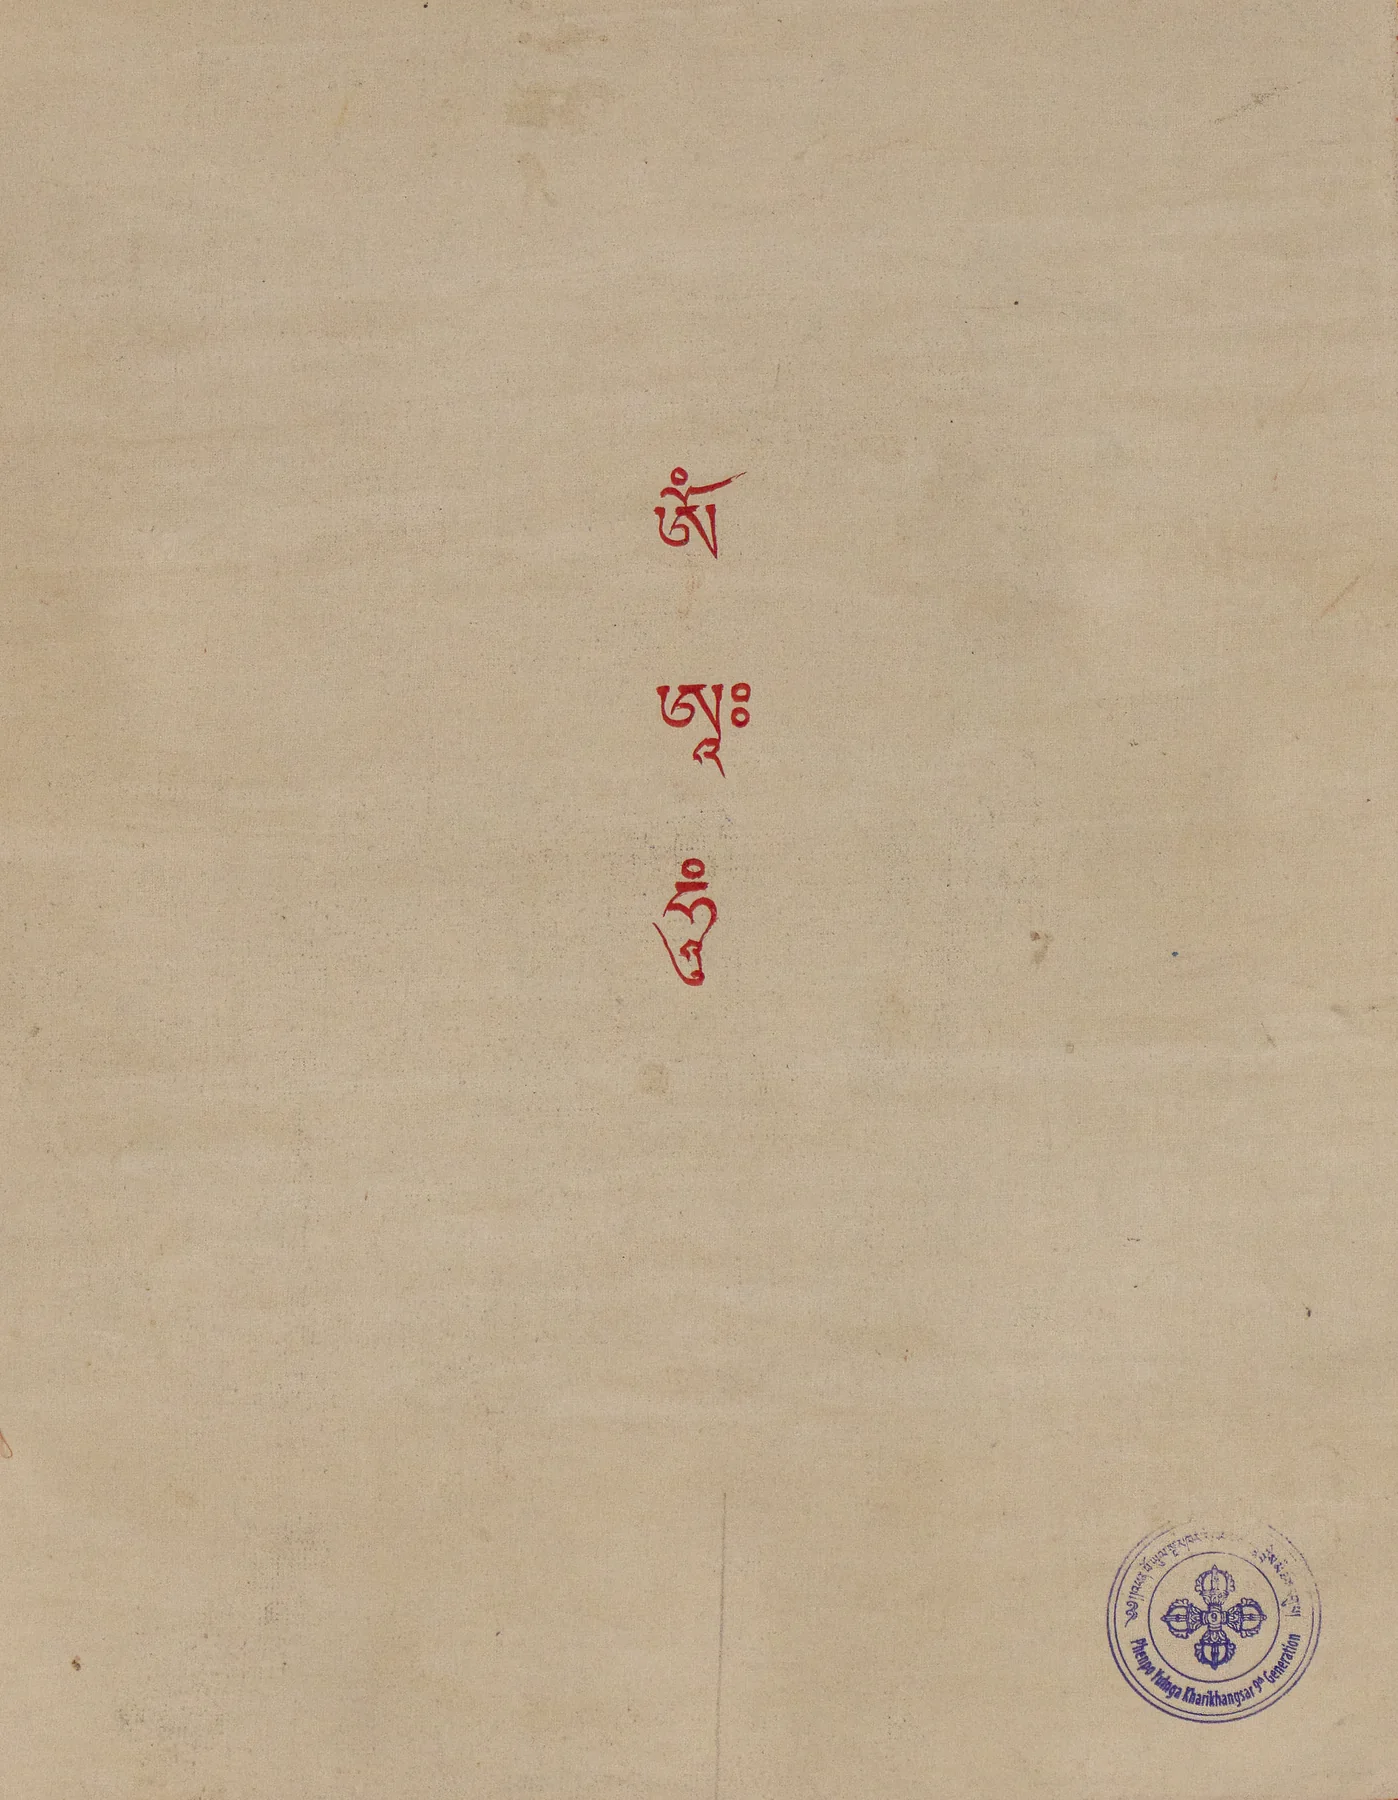 ཨོཾ
ཨཱཿ
ཧཱུྃ
Phenpo Yulnga Kharikhangsar 9th Generation